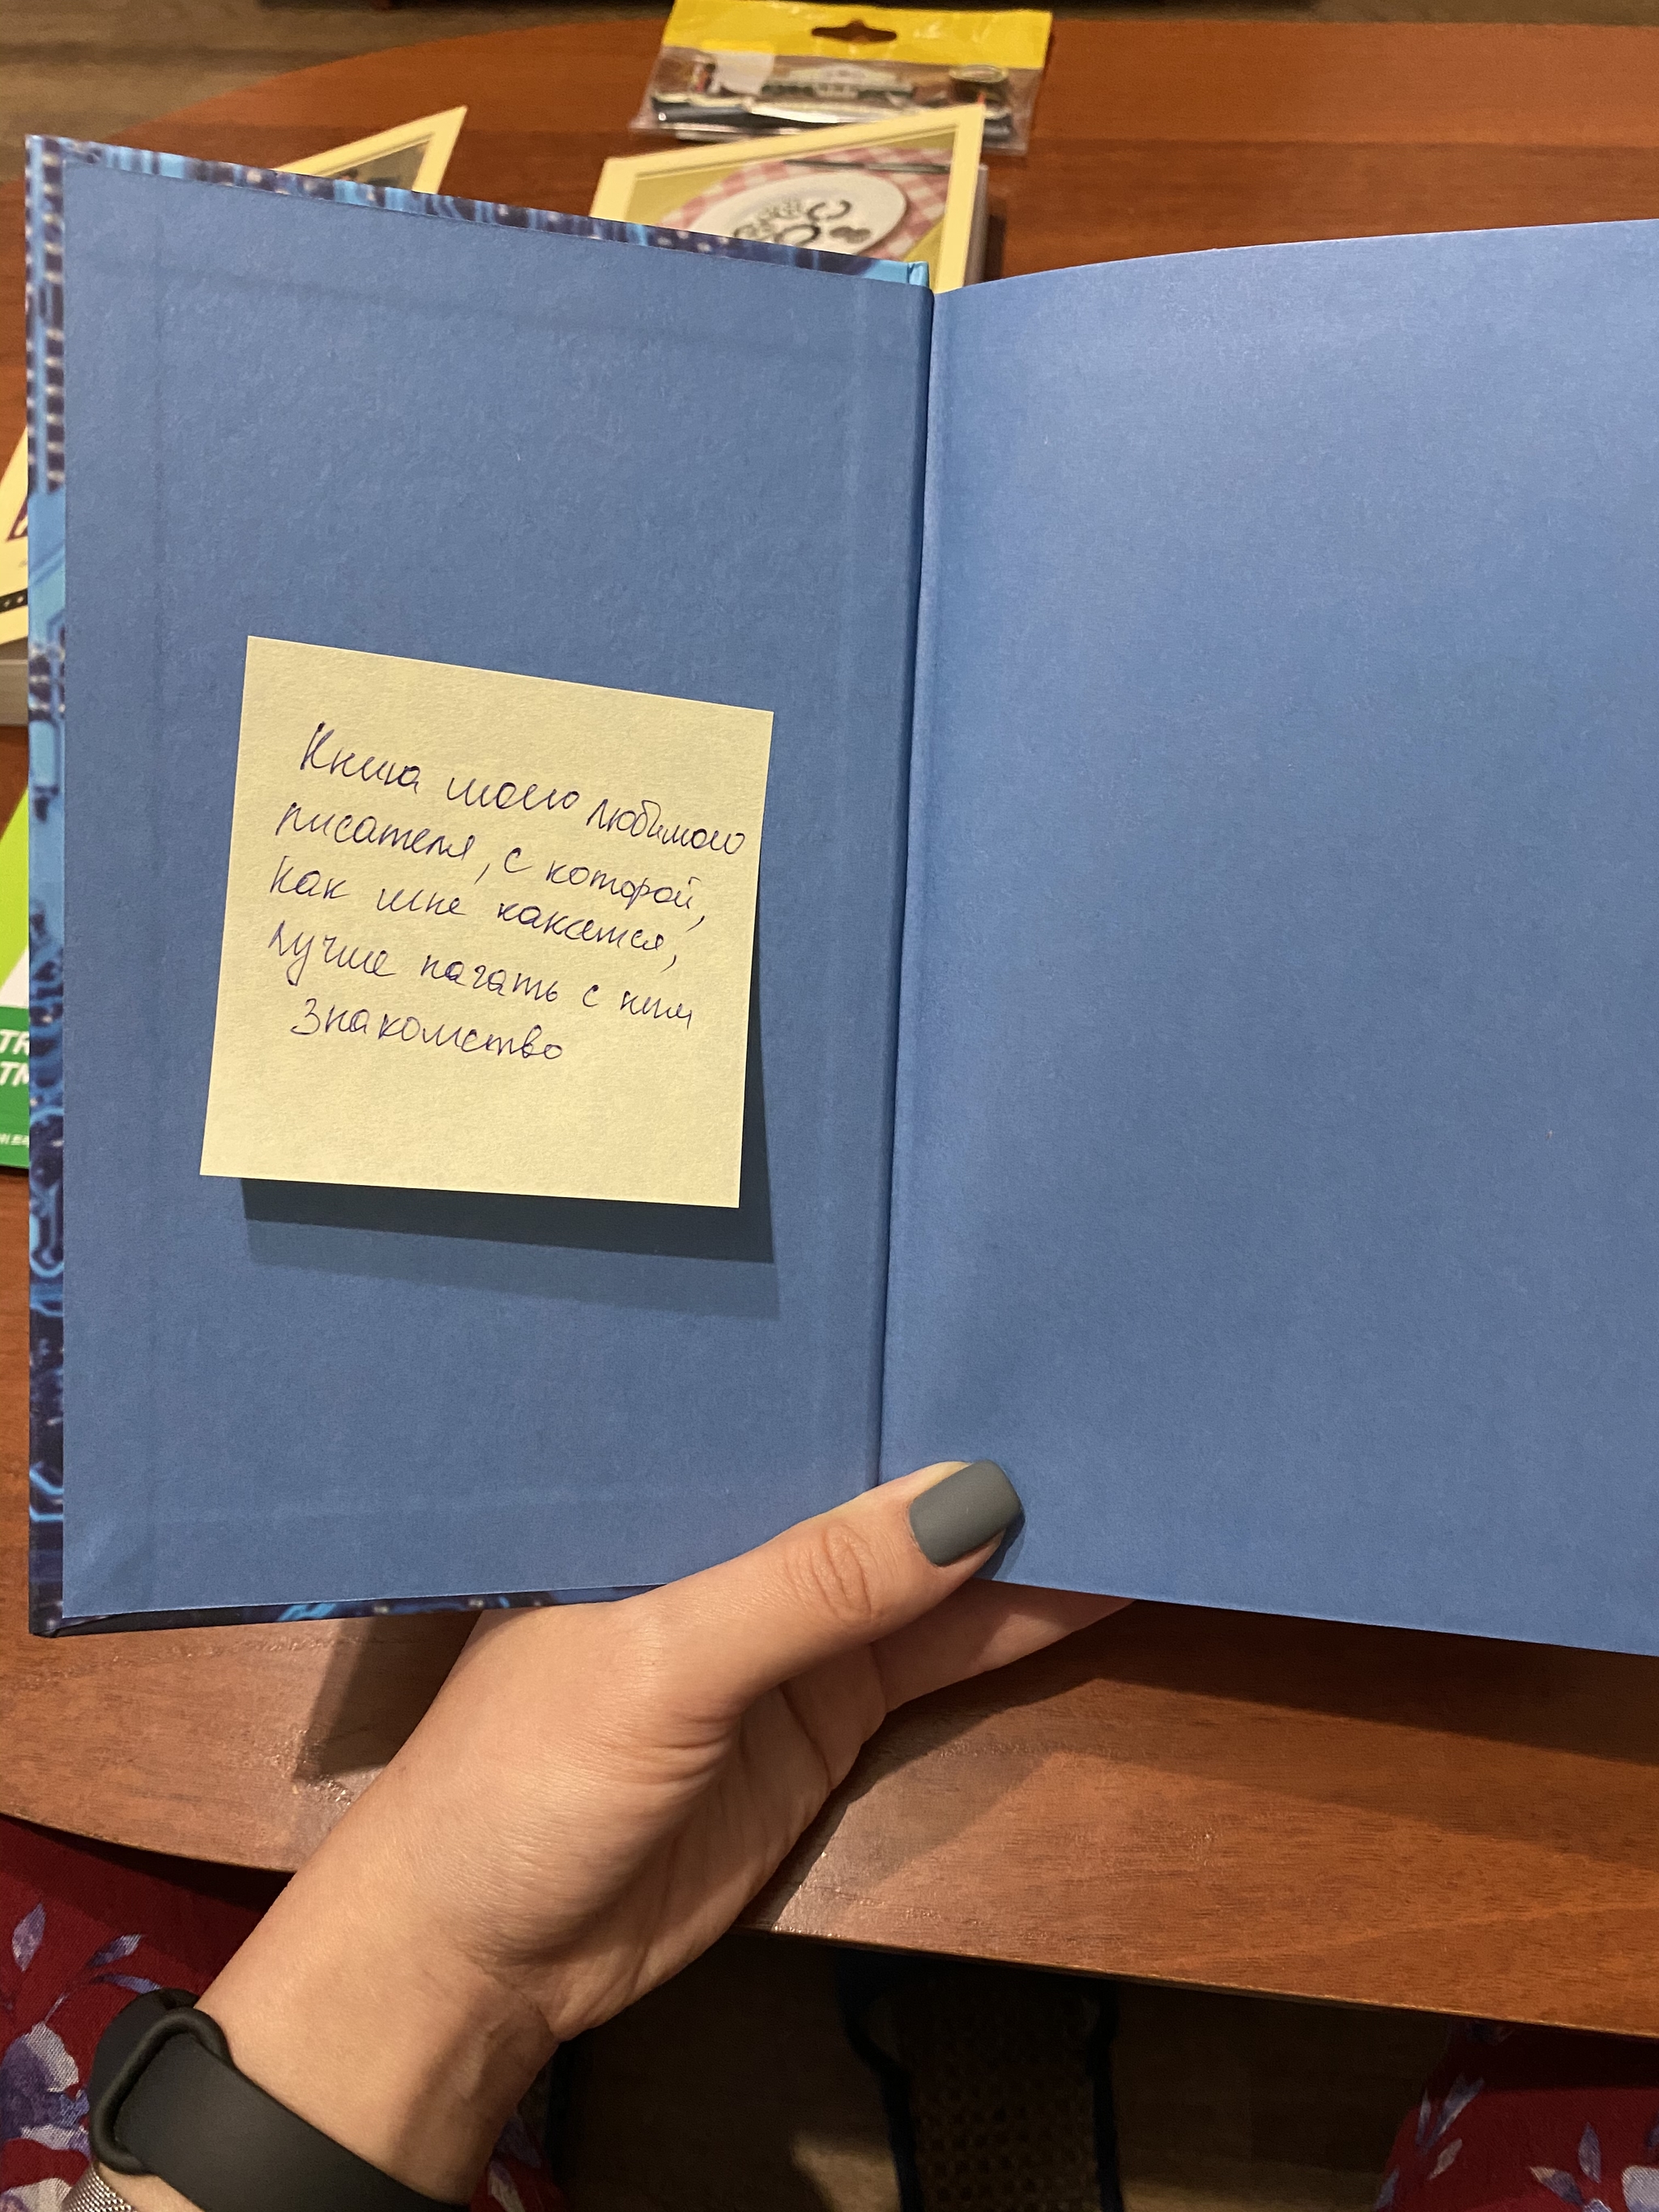 Книга моего любимого
писателя, с которой,
как мне кажется,
лучше начать с ним
знакомство
TR